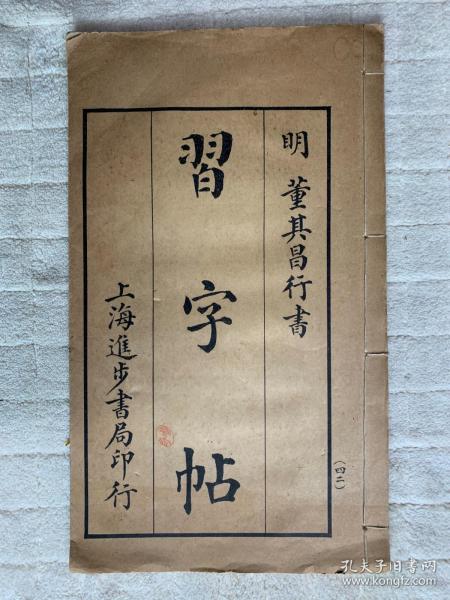 明 董其昌行書
(四二)
習字帖
上海進步書局印行
孔夫子旧书网
www.kongfz.com